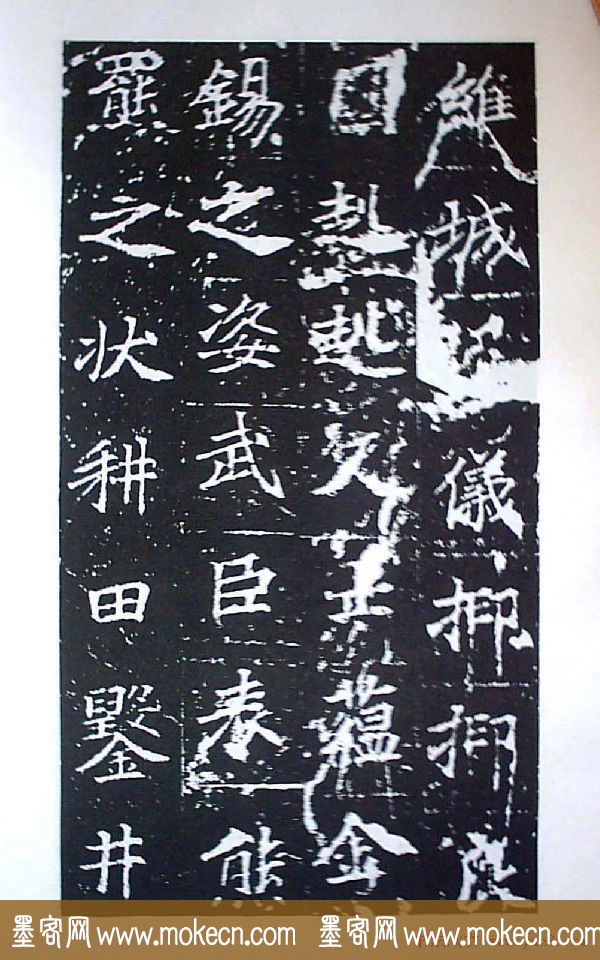 維城儀抑抑
赳赳蘊金
錫之姿武臣奉熊
羆之状耕田鑿井
墨客网 www.mokecn.com 墨客网 www.mokecn.com